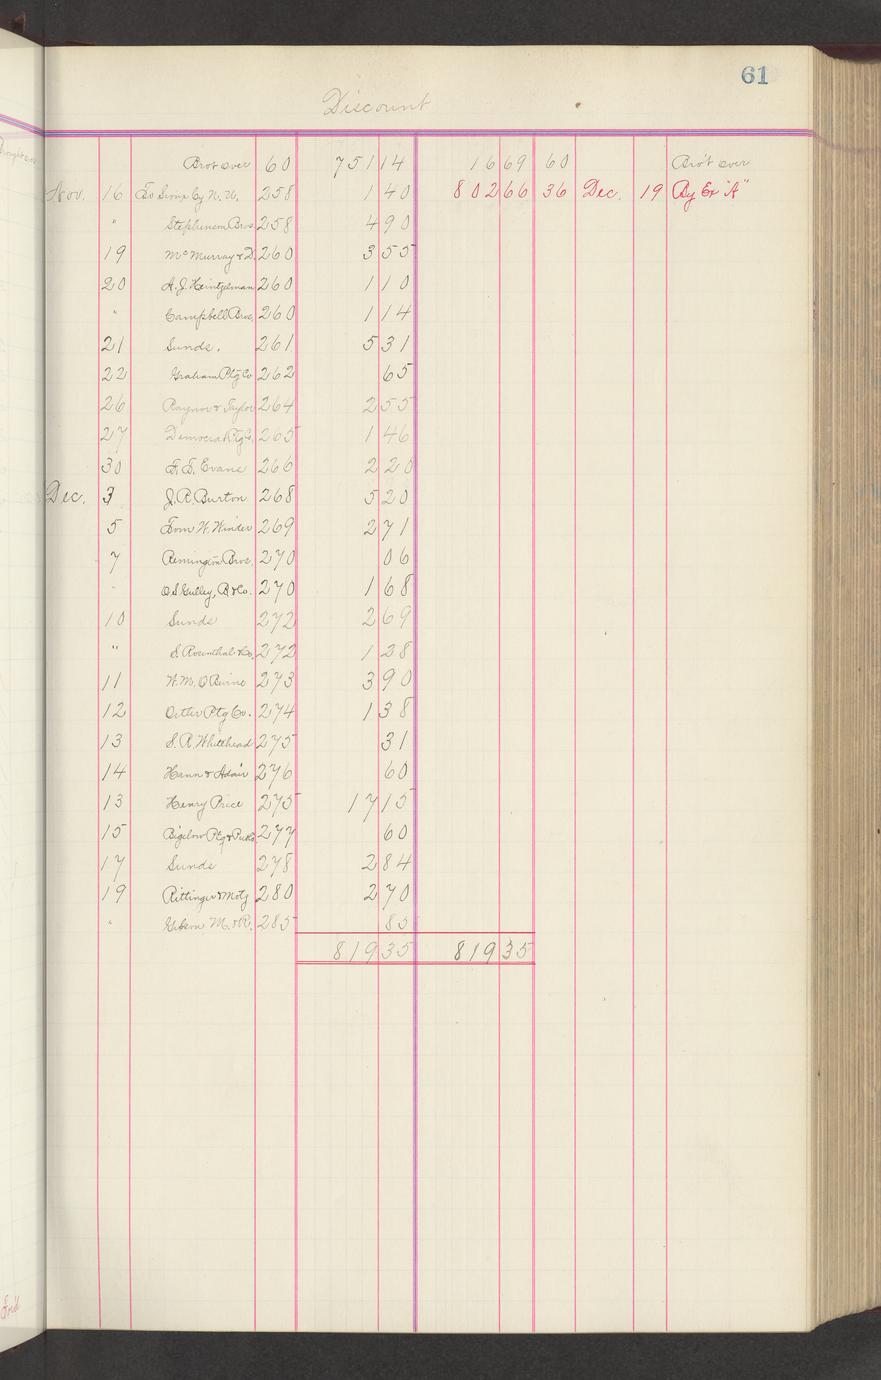 61
Discount
Brot over 60 751 14 16 69 60 Bro't over
Nov. 16 To Sioux Cy N. U. 258 1 40 802 66 36 Dec. 19 By Ex "A"
" Stephenson Bros. 258 4 90
19 McMurray & D. 260 3 55
20 A. J. Heintzelman 260 1 10
" Campbell Bros. 260 1 14
21 Sunds. 261 5 31
22 Graham Ptg Co 262 65
26 Raynor & Taylor 264 2 55
27 Democrat Ptg Co. 265 1 46
30 F. T. Evans 266 2 20
Dec. 3 J. R. Burton 268 5 20
5 Tom W. Winder 269 2 71
7 Remington Bros. 270 06
" O S Gulley, B & Co. 270 1 68
10 Sunds 272 2 69
" S. Rosenthal & Co. 272 1 28
11 W. M. 273 3 90
12 Ptg Co. 274 1 38
13 S. R. Whitehead 275 31
14 Hann & Adair 276 60
13 Henry Price 275 17 15
15 Bigelow Ptg & 277 60
17 Sunds 278 2 84
19 Rittinger & Motz 280 2 70
" Gibson M. & R. 285 85
819 35 819 35